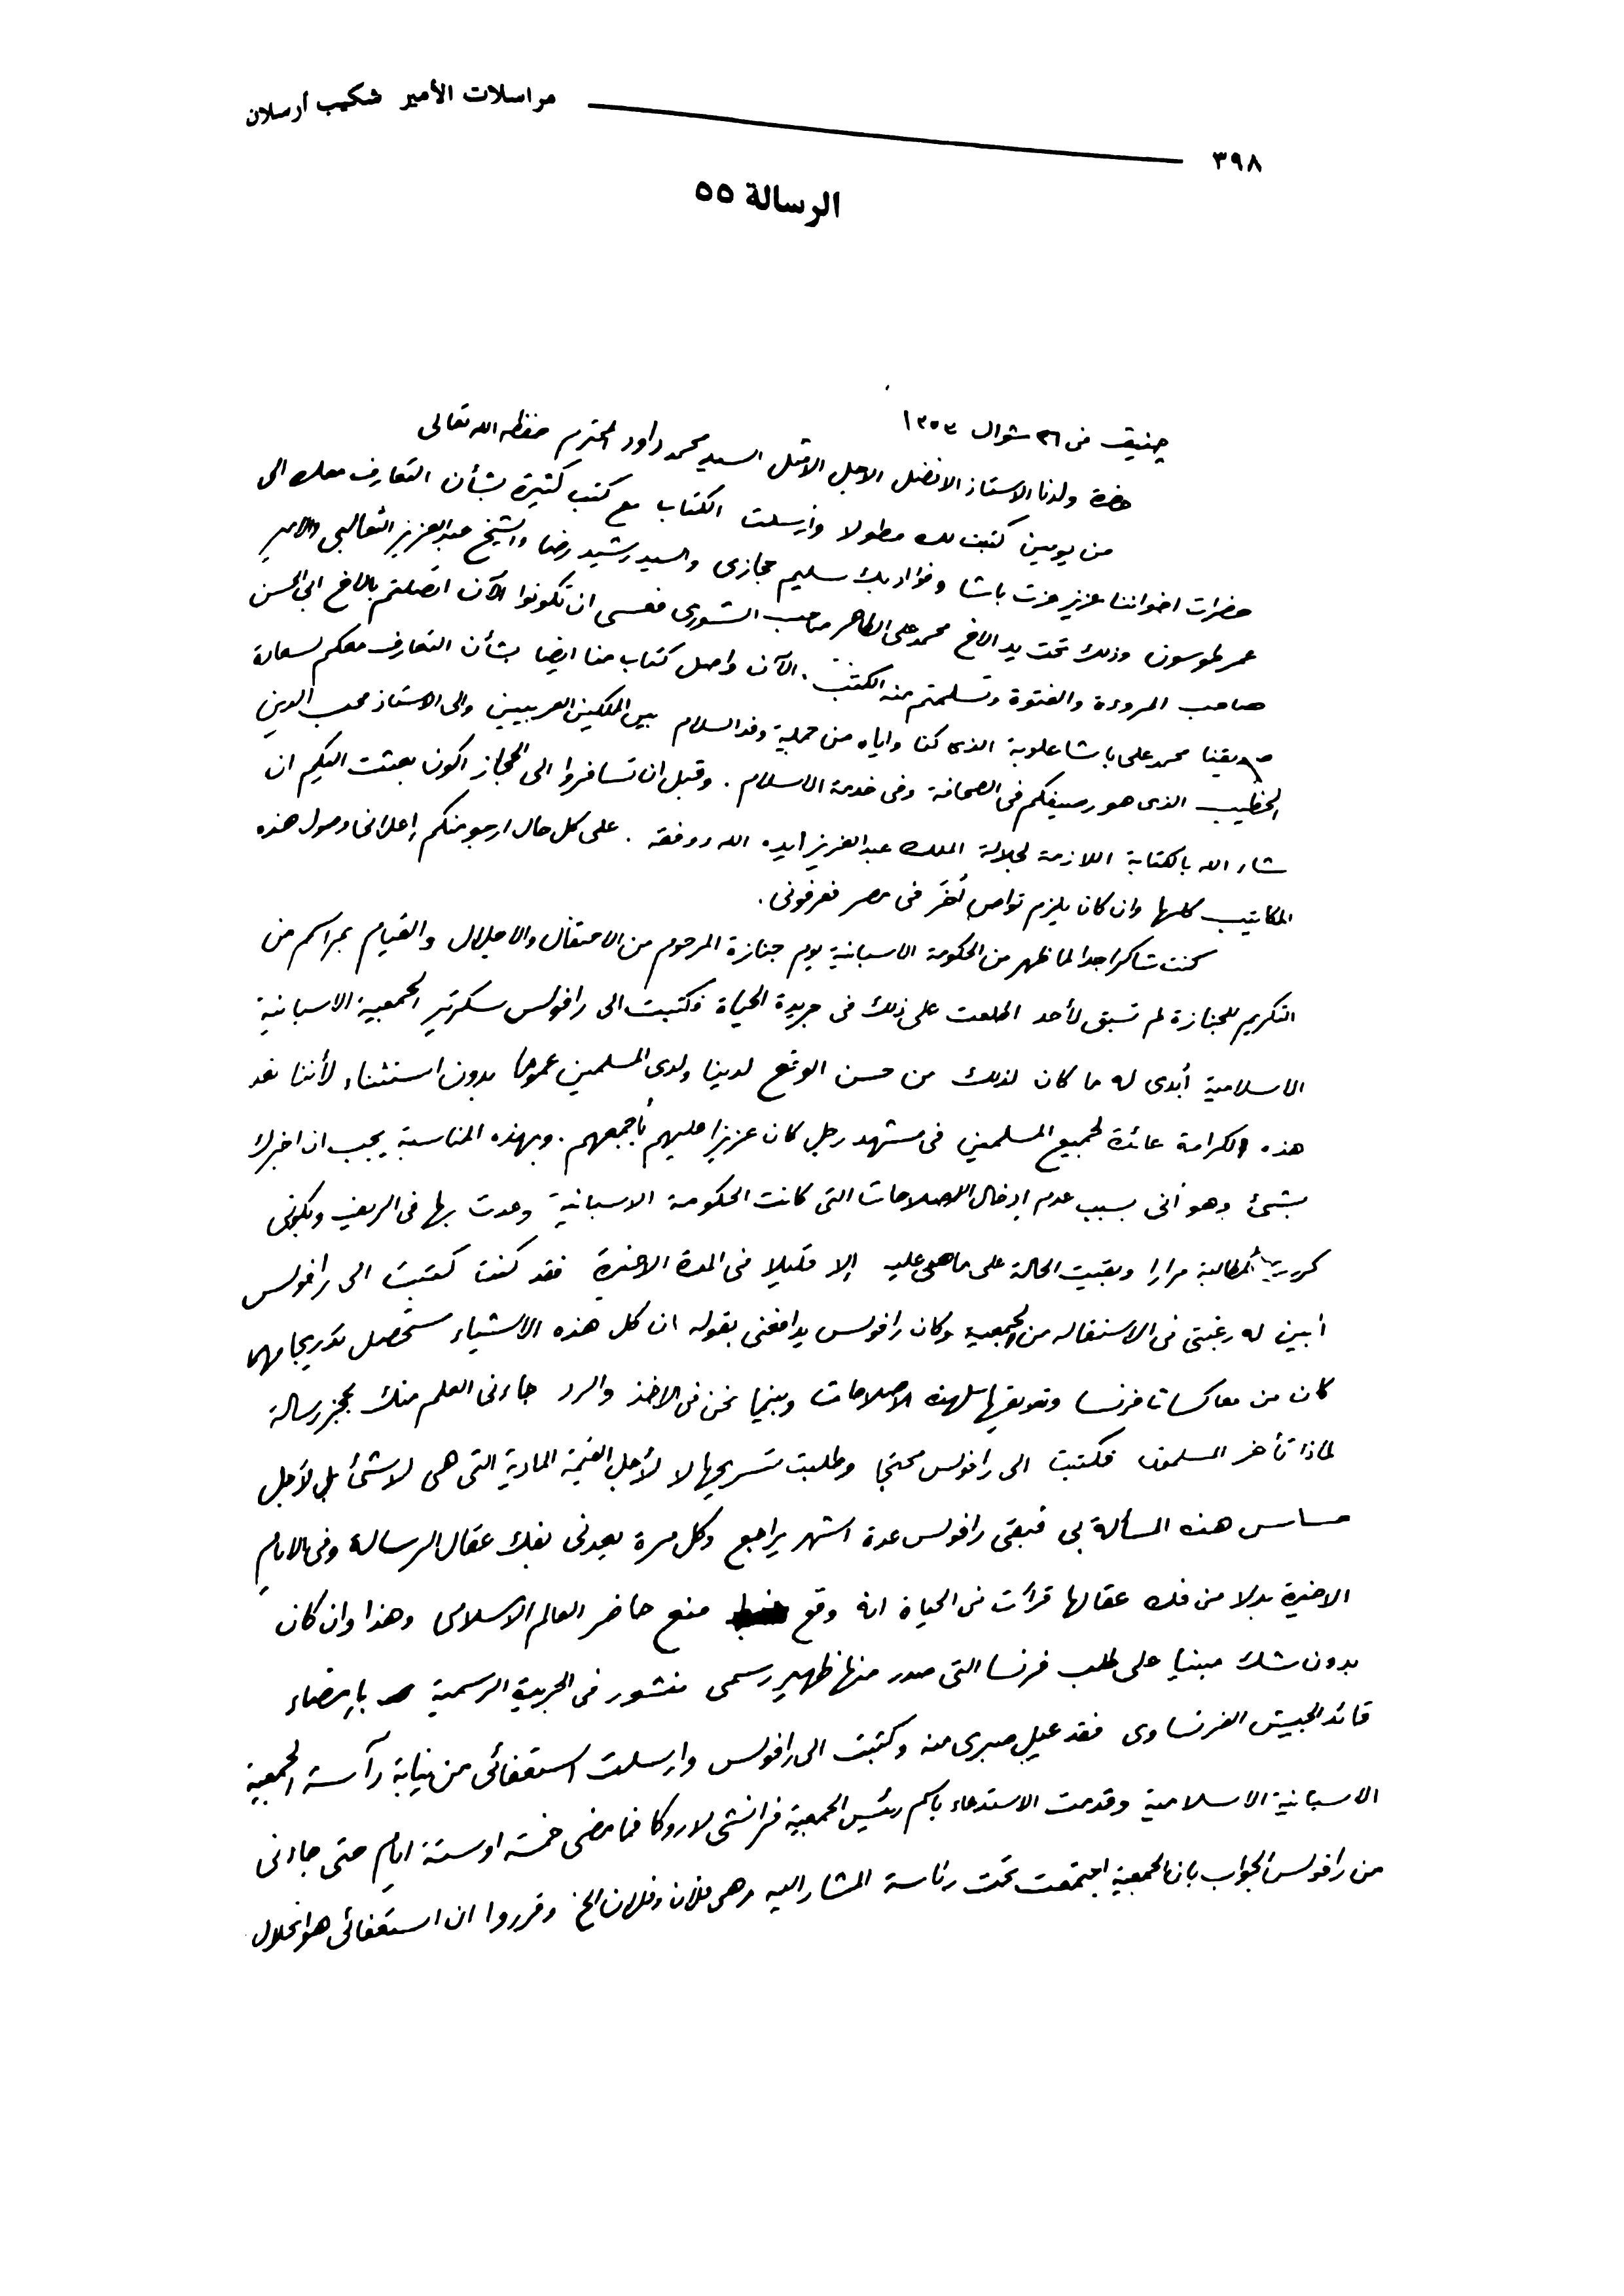 مراسلات الأمير شكيب أرسلان
٣٩٨
الرسالة ٥٥
جنيف في ٢٦ شوال ١٣٥٣
حضرة ولدنا الاستاذ الافضل الاجل الامثل السيد محمد داود المحترم حفظه الله تعالى
من يومين كتبت لك مطولا وارسلت الكتاب مع كتب كثيرة بشأن التعارف معك الى
حضرات اخواننا عزيز عزت باشا وفؤاد بك سليم حجازى والسيد رشيد رضا والشيخ عبد العزيز الثعالبى والامير
عمر طوسون وذلك تحت يد الاخ محمد على الطاهر صاحب الشورى فعسى ان تكونوا الآن اتصلتم بالاخ ابى الحسن
صاحب المروءة والفتوة وتسلمتم منه الكتب. الآن واصل كتاب منا ايضا بشأن التعارف معكم لسعادة
صديقنا محمد على باشا علوبة الذى كنا واياه من حملة وفد السلام بين الملكين العربيين والى الاستاذ محب الدين
الخطيب الذى هو رصيفكم فى الصحافة وفى خدمة الاسلام. وقبل ان تسافروا الى الحجاز اكون بعثت اليكم ان
شاء الله بالكتابة اللازمة لجلالة الملك عبد العزيز ايده الله ووفقه. على كل حال ارجو منكم إعلانى وصول هذه
المكاتيب كلها وان كان يلزم تواص أخر فى مصر فعرفونى.
كنت شاكرا جدا لما ظهر من الحكومة الاسبانية يوم جنازة المرحوم من الاحتفال والاجلال والقيام بمراسم من
التكريم للجنازة لم تسبق لأحد اطلعت على ذلك فى جريدة الحياة فكتبت الى رافولس سكرتير الجمعية الاسبانية
الاسلامية أبدى له ما كان لذلك من حسن الوقع لدينا ولدى المسلمين عموما بدون استثناء لأننا نعد
هذه الكرامة عائدة لجميع المسلمين فى مشهد رجل كان عزيزا عليهم بأجمعهم. وبهذه المناسبة يجب ان اخبرك
بشئ وهو أنى بسبب عدم إدخال الاصلاحات التى كانت الحكومة الاسبانية وعدت بها فى الريف وبكونى
كررت المطالبة مرارا وبقيت الحالة على ما هى عليه إلا قليلا فى المدة الاخيرة فقد كنت كتبت الى رافولس
أبين له رغبتى فى الاستقاله من الجمعية وكان رافولس يدافعنى بقوله ان كل هذه الاشياء ستحصل تدريجا مهما
كان من معاكسات فرنسا وتعويقها لهذه الاصلاحات وبينما نحن فى الاخذ والرد جاءنى العلم منك بحجز رسالة
لماذا تأخر المسلمون فكتبت الى رافولس محتجا وطلبت تسريحها لا لأجل القيمة المادية التى هى لا شئ بل لأجل
مساس هذه المسألة بى فبقى رافولس عدة اشهر يراجع وكل مرة يعدنى بفك عقال الرسالة وفى الايام
الاخيرة بدلا من فك عقالها قرأت فى الحياة انه وقع منع حاضر العالم الاسلامى وهذا وان كان
بدون شك مبنيا على طلب فرنسا التى صدر منها ظهير رسمى منشور فى الجريدة الرسمية بإمضاء
قائد الجيش الفرنساوى فقد عيل صبرى منه وكتبت الى رافولس وارسلت استعفائى من نيابة رآسة الجمعية
الاسبانية الاسلامية وقدمت الاستدعاء باسم رئيس الجمعية فرانشى لاروكا فما مضى خمسة او ستة ايام حتى جاءنى
من رافولس الجواب بان الجمعية اجتمعت تحت رئاسة المشار اليه وهى فلان وفلان الخ وقرروا ان استعفائى هو انحلال